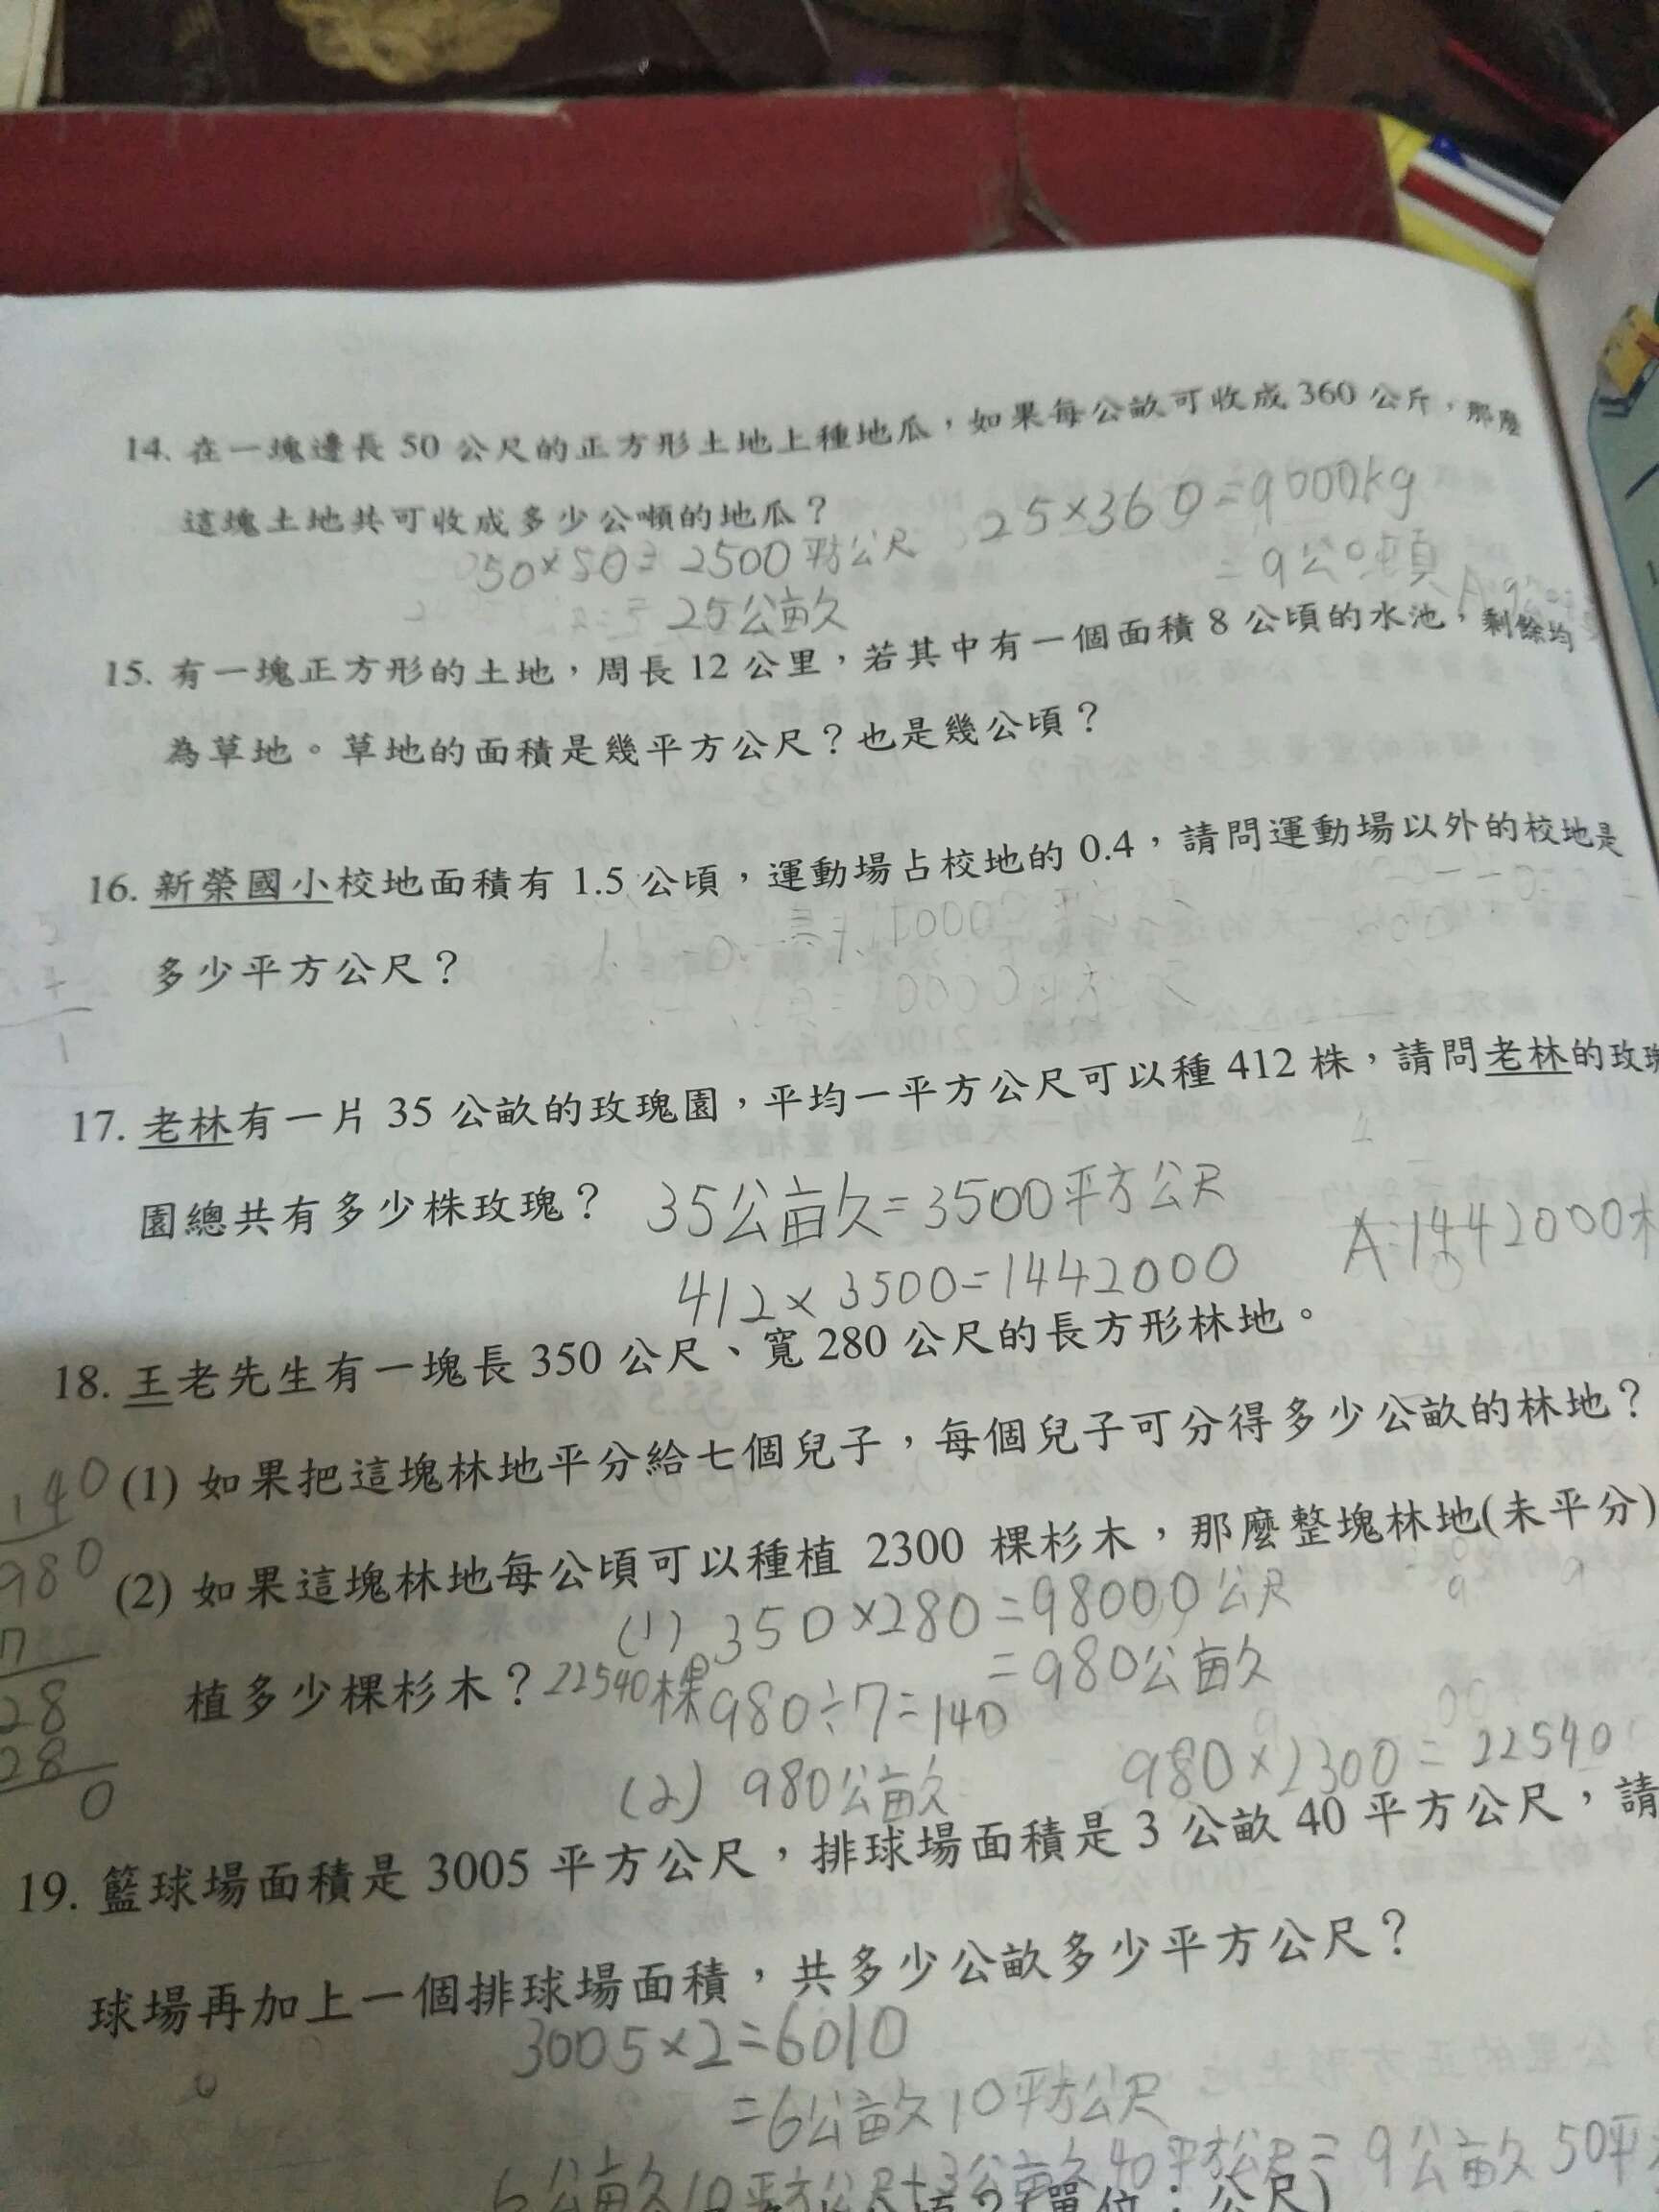 14. 在一塊邊長 50 公尺的正方形土地上種地瓜，如果每公畝可收成 360 公斤，那麼
這塊土地共可收成多少公噸的地瓜？
25×360=9000kg
50×50=2500平方公尺
=9公噸
25公畝
15. 有一塊正方形的土地，周長 12 公里，若其中有一個面積 8 公頃的水池，剩餘均
為草地。草地的面積是幾平方公尺？也是幾公頃？
16. 新榮國小校地面積有 1.5 公頃，運動場占校地的 0.4，請問運動場以外的校地是
多少平方公尺？
17. 老林有一片 35 公畝的玫瑰園，平均一平方公尺可以種 412 株，請問老林的玫瑰
園總共有多少株玫瑰？
35公畝=3500平方公尺
A:1442000
412×3500=1442000
18. 王老先生有一塊長 350 公尺、寬 280 公尺的長方形林地。
(1) 如果把這塊林地平分給七個兒子，每個兒子可分得多少公畝的林地？
(2) 如果這塊林地每公頃可以種植 2300 棵杉木，那麼整塊林地(未平分)
植多少棵杉木？
22540棵
(1) 350×280=98000公尺
=980公畝
980÷7=140
(2) 980公畝
980×2300=22540
140
980
7
28
28
0
19. 籃球場面積是 3005 平方公尺，排球場面積是 3 公畝 40 平方公尺，請
球場再加上一個排球場面積，共多少公畝多少平方公尺？
3005×2=6010
=6公畝10平方公尺
6公畝10平方公尺+3公畝40平方公尺=9公畝50平
單位：公尺)